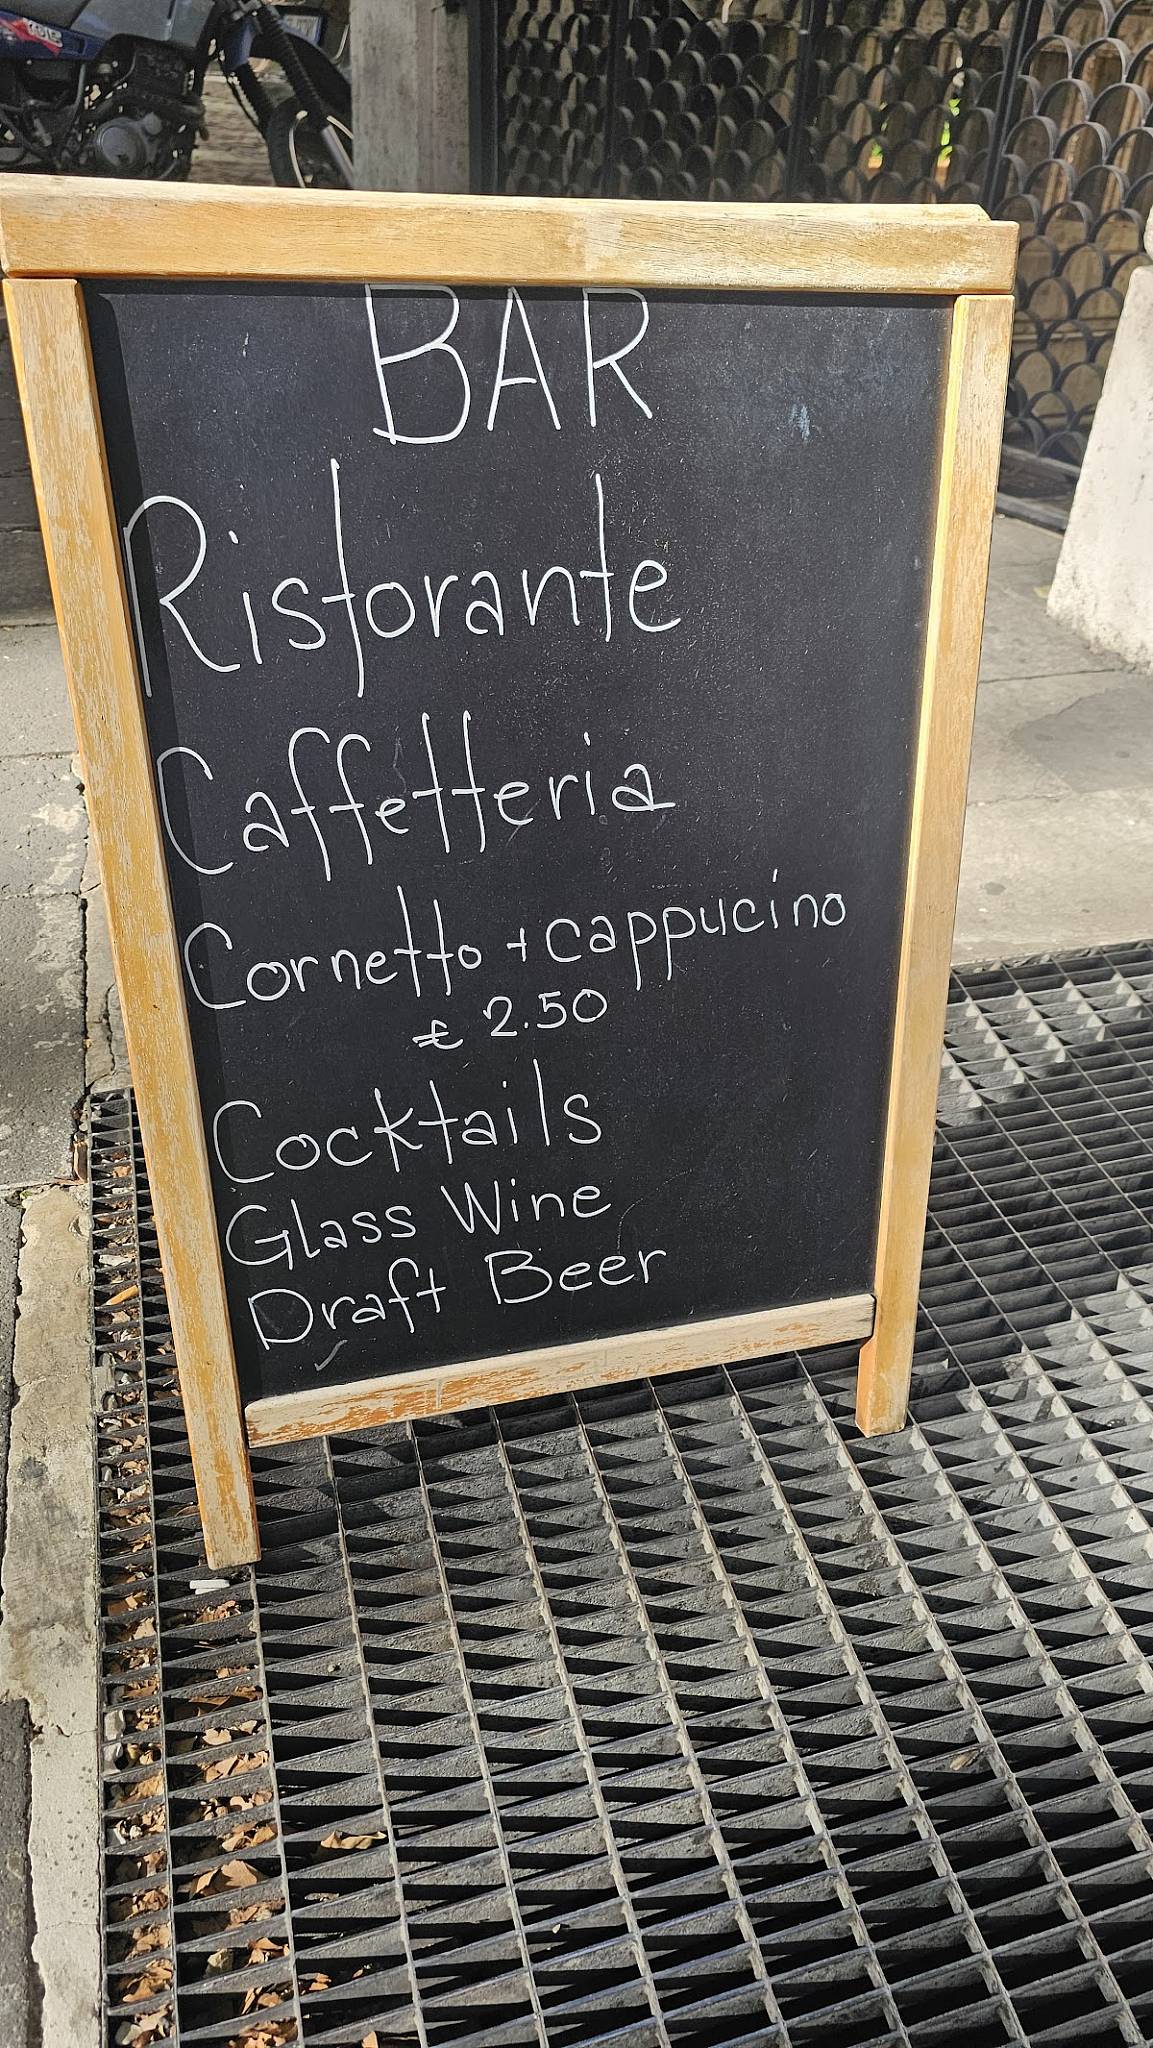 BAR
Ristorante
Caffetteria
Cornetto + cappucino
€ 2.50
Cocktails
Glass Wine
Draft Beer